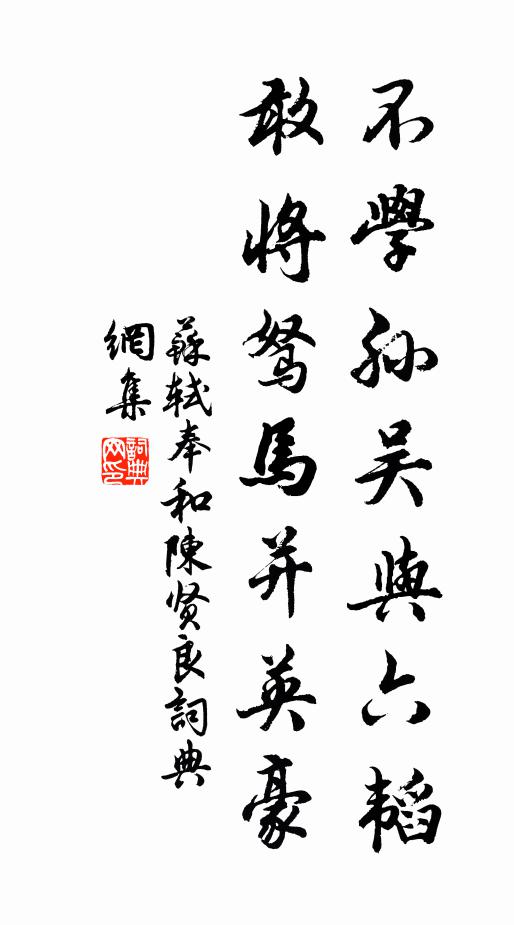 不學孫吳與六韜
敢將駑馬并英豪
蘇軾奉和陳贤良詞典
網集
詞典
网印